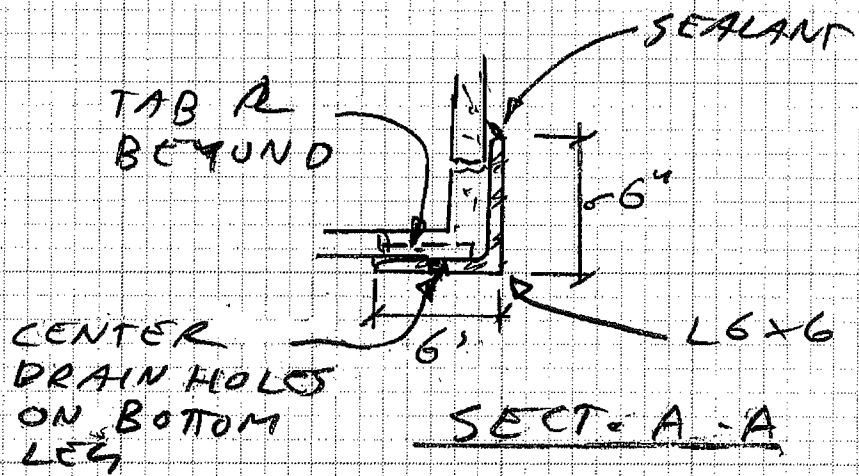 SEALANT
TAB PL
BEYOND
6"
CENTER
DRAIN HOLES
ON BOTTOM
LEG
6'
L6x6
SECT. A-A